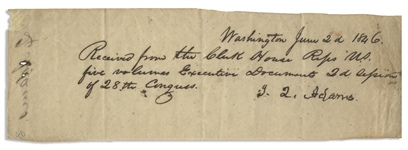 Washington June 2d 1846.
Received from the Clerk House Reps US.
five volumes Executive Documents 2d Session
of 28th Congress.
J. Q. Adams.